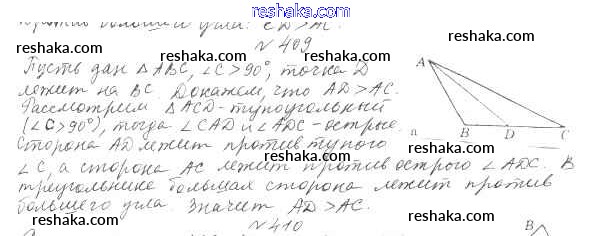 против большего угла: CD > AC.
reshaka.com
№ 409
reshaka.com
reshaka.com
Пусть дан △ABC, ∠C>90°, точка D
лежит на BC. Докажем, что AD > AC.
reshaka.com
reshaka.com
Рассмотрим △ACD - тупоугольный
(∠C>90°), тогда ∠CAD и ∠ADC - острые.
A
B
D
C
a
reshaka.com
reshaka.com
Сторона AD лежит против тупого
reshaka.com
∠C, а сторона AC лежит против острого ∠ADC. В
reshaka.com
треугольнике большая сторона лежит против
большего угла. Значит AD > AC.
reshaka.com
reshaka.com
№ 410
B